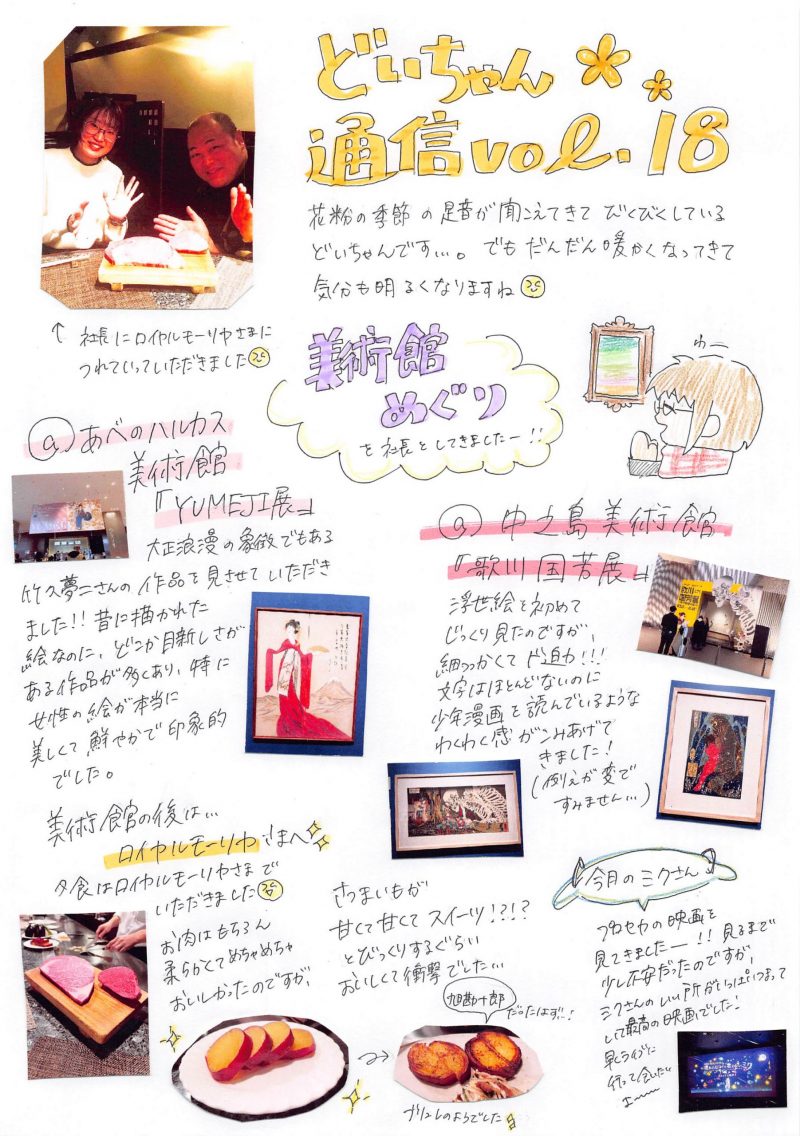 どいちゃん
通信vol.18
花粉の季節の足音が聞こえてきてびくびくしている
どいちゃんです…。でもだんだん暖かくなってきて
気分も明るくなりますね
↑ 社長にロイヤルモーリヤさまに
つれていっていただきました
美術館
めぐり
を社長としてきましたー!!
わー
@あべのハルカス
美術館
「YUMEJI展」
大正浪漫の象徴でもある
竹久夢二さんの作品を見させていただき
ました!!昔に描かれた
絵なのに、どこか目新しさが
ある作品が多くあり、特に
女性の絵が本当に
美しくて鮮やかで印象的
でした。
@中之島美術館
「歌川国芳展」
浮世絵を初めて
じっくり見たのですが、
細っかくてド迫力!!!
文字はほとんどないのに
少年漫画を読んでいるような
わくわく感がこみあげて
きました!
(例えが変で
すみません…)
美術館の後は…
ロイヤルモーリヤさまへ
夕食はロイヤルモーリヤさまで
いただきました
お肉はもちろん
柔らかくてめちゃめちゃ
おいしかったのですが、
さつまいもが
甘くて甘くてスイーツ!?!?
とびっくりするぐらい
おいしくて衝撃でした…
旭甘十郎
だったはず…!
→
ブリュレのようでした
今月のミクさん
プロセカの映画を
見てきましたー!!見るまで
少し不安だったのですが、
ミクさんのいい所がいっぱいつまって
いて最高の映画でした!
早くライブに
行って会いたい
よ〜